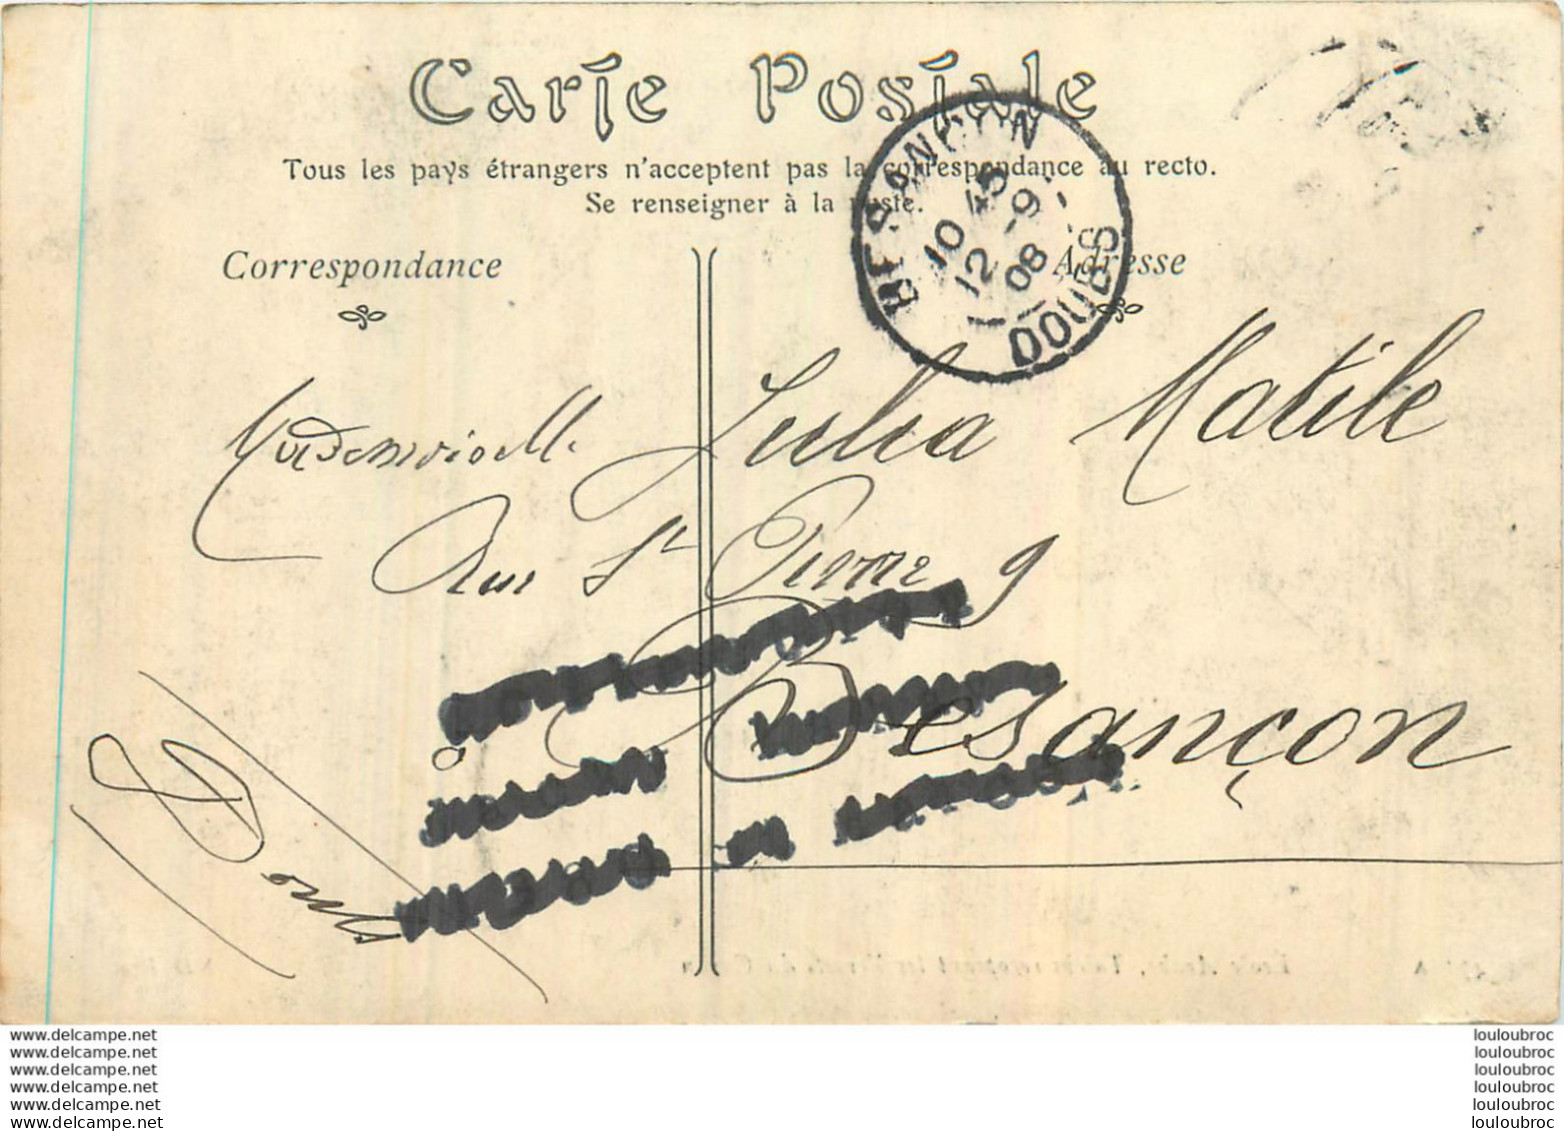 Carte Postale
Tous les pays étrangers n'acceptent pas la correspondance au recto.
Se renseigner à la poste.
Correspondance
Adresse
BESANÇON
10 45
12 -9
08
DOUBS
Mademoiselle Julia Matile
Rue St Pierre 9
Besançon
Doubs
www.delcampe.net
www.delcampe.net
www.delcampe.net
www.delcampe.net
www.delcampe.net
www.delcampe.net
louloubroc
louloubroc
louloubroc
louloubroc
louloubroc
louloubroc